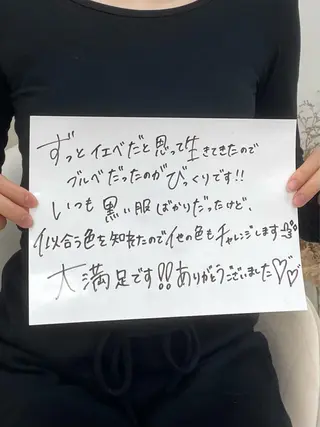 ずっとイエベだと思って生きてきたので
ブルベだったのがびっくりです!!
いつも黒い服ばかりだったけど、
似合う色を知れたので他の色もチャレンジします
大満足です!!ありがとうございました♡♡